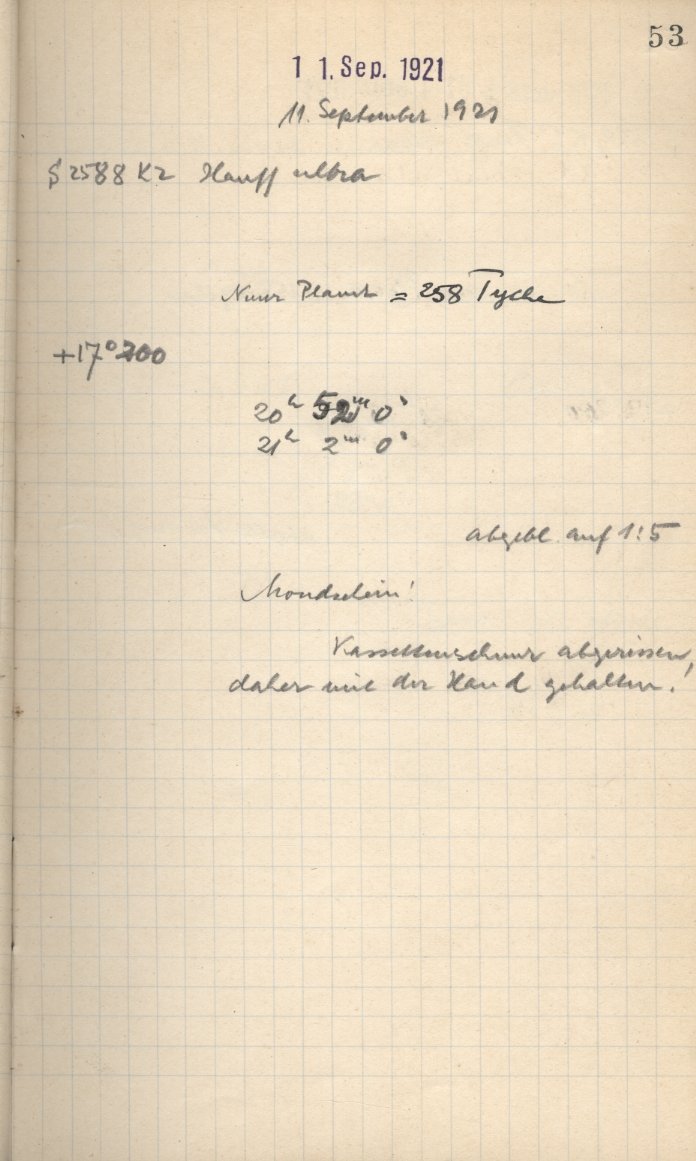 53
1 1. Sep. 1921
11. September 1921
S 2588 K2 Hauff ultra
Neuer Planet = 258 Tyche
+17° 200
20ʰ 52ᵐ 0ˢ
21ʰ 2ᵐ 0ˢ
abgebl. auf 1:5
Mondschein!
Kassettenschnur abgerissen,
daher mit der Hand gehalten!